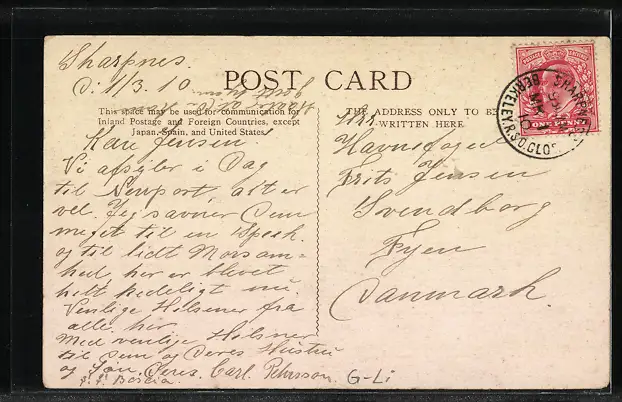 Sharpnes.
d. 1/3. 10
POST CARD
This space may be used for communication for
Inland Postage and Foreign Countries, except
Japan, Spain, and United States.
THE ADDRESS ONLY TO BE
WRITTEN HERE
Kære Jensen!
Vi afsejler i Dag
til Newport, alt er
vel. Jeg savner Dem
meget til en Spøk
og til lidt Morsom=
hed, her er blevet
helt kedeligt nu.
Venlige Hilsener fra
alle her
Med venlige Hilsner
til Dem og Deres Hustru
og Søn. Deres Carl Petersson.
S. S. Boscia.
Hr.
Havnefoged
Frits Jensen
Svendborg
Fyen
Danmark.
G-Li
POSTAGE REVENUE
ONE PENNY
SHARPNESS
BERKELEY R.S.O. GLOS